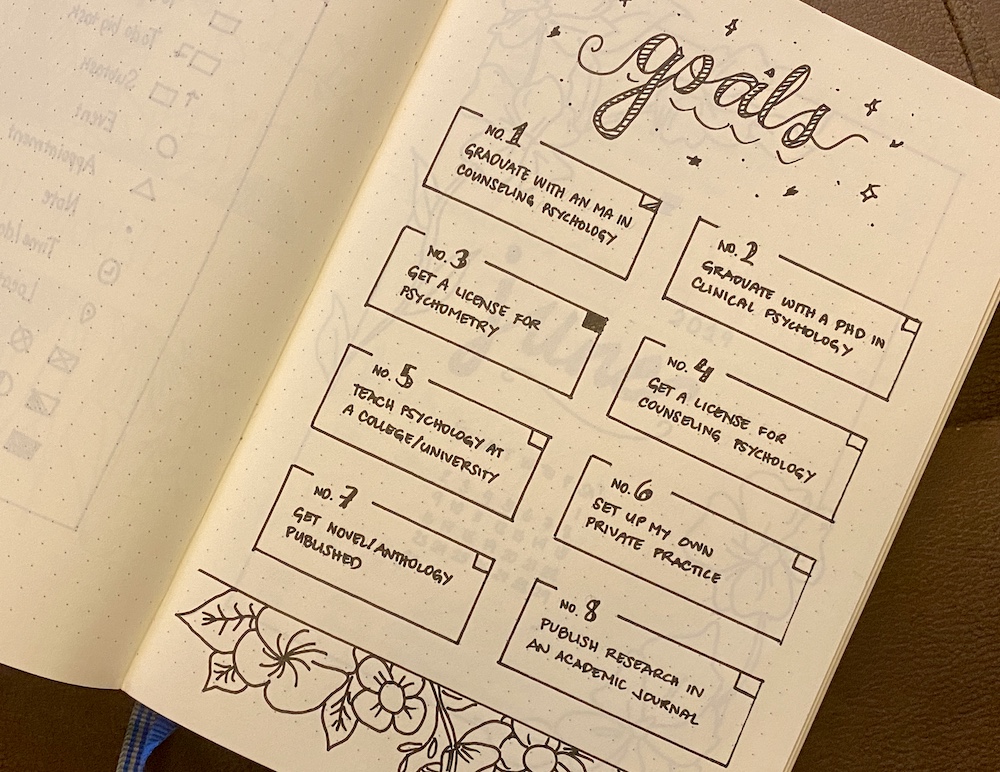 goals
NO. 1
GRADUATE WITH AN MA IN
COUNSELING PSYCHOLOGY
NO. 2
GRADUATE WITH A PHD IN
CLINICAL PSYCHOLOGY
NO. 3
GET A LICENSE FOR
PSYCHOMETRY
NO. 4
GET A LICENSE FOR
COUNSELING PSYCHOLOGY
NO. 5
TEACH PSYCHOLOGY AT
A COLLEGE/UNIVERSITY
NO. 6
SET UP MY OWN
PRIVATE PRACTICE
NO. 7
GET NOVEL/ANTHOLOGY
PUBLISHED
NO. 8
PUBLISH RESEARCH IN
AN ACADEMIC JOURNAL